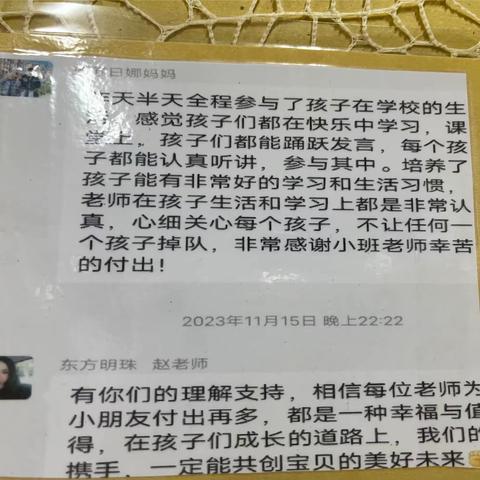 日娜妈妈
昨天半天全程参与了孩子在学校的生
活，感觉孩子们都在快乐中学习，课
堂上，孩子们都能踊跃发言，每个孩
子都能认真听讲，参与其中。培养了
孩子能有非常好的学习和生活习惯，
老师在孩子生活和学习上都是非常认
真，心细关心每个孩子，不让任何一
个孩子掉队，非常感谢小班老师幸苦
的付出！
2023年11月15日 晚上22:22
东方明珠 赵老师
有你们的理解支持，相信每位老师为
小朋友付出再多，都是一种幸福与值
得，在孩子们成长的道路上，我们的
携手，一定能共创宝贝的美好未来